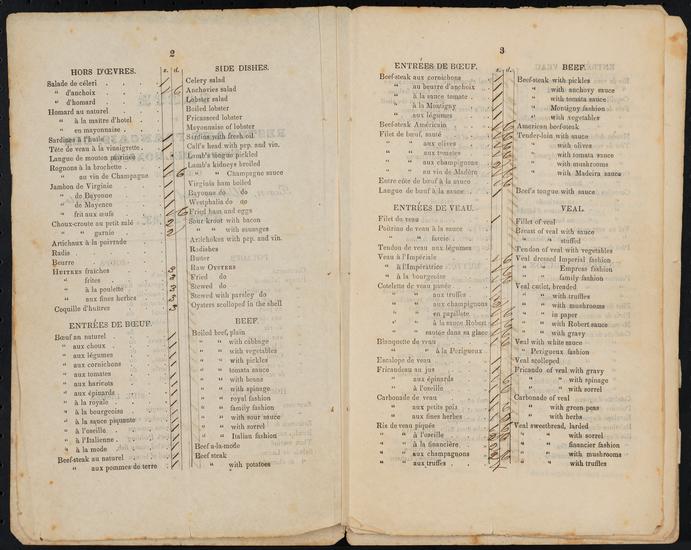 2
HORS D'ŒVRES.
s. d.
Salade de céleri
“ d'anchoix
“ d'homard
Homard au naturel
“ à la maitre d'hotel
“ en mayonnaise
Sardines à l'huile
Tête de veau à la vinaigrette
Langue de mouton marinée
Rognons à la brochette
“ au vin de Champagne
Jambon de Virginie
“ de Bayonne
“ de Mayence
“ frit aux œufs
Choux-croute au petit salé
“ “ garnie
Artichaux à la poivrade
Radis
Beurre
HUITRES fraiches
“ frites
“ à la poulette
“ aux fines herbes
Coquille d'huitres
ENTRÉES DE BŒUF.
Bœuf au naturel
“ aux choux
“ aux légumes
“ aux cornichons
“ aux tomates
“ aux haricots
“ aux épinards
“ à la royale
“ à la bourgeoise
“ à la sauce piquante
“ à l'oseille
“ à l'Italienne
“ à la mode
Beef-steak au naturel
“ aux pommes de terre
SIDE DISHES.
Celery salad
Anchovies salad
Lobster salad
Boiled lobster
Fricasseed lobster
Mayonnaise of lobster
Sardins with fresh oil
Calf's head with pep. and vin.
Lamb's tongue pickled
Lamb's kidneys broiled
“ “ Champagne sauce
Virginia ham boiled
Bayonne do do
Westphalia do do
Fried ham and eggs
Sour krout with bacon
“ “ with sausages
Artichokes with pep. and vin.
Radishes
Butter
RAW OYSTERS
Fried do
Stewed do
Stewed with parsley do
Oysters scolloped in the shell
BEEF.
Boiled beef, plain
“ “ with cabbage
“ “ with vegetables
“ “ with pickles
“ “ tomata sauce
“ “ with beans
“ “ with spinage
“ “ royal fashion
“ “ family fashion
“ “ with sour sauce
“ “ with sorrel
“ “ Italian fashion
Beef a-la-mode
Beef steak
“ with potatoes
3
ENTRÉES DE BŒUF.
s. d.
Beef-steak aux cornichons
“ au beurre d'anchoix
“ à la sauce tomate
“ à la Montigny
“ aux légumes
Beef-steak Américain
Filet de bœuf, sauté
“ aux olives
“ aux tomates
“ aux champignons
“ au vin de Madère
Entre côte de bœuf à la sauce
Langue de bœuf à la sauce
ENTRÉES DE VEAU.
Filet de veau
Poitrine de veau à la sauce
“ “ farcie
Tendon de veau aux légumes
Veau à l'Impériale
“ à l'Impératrice
“ à la bourgeoise
Cotelette de veau panée
“ aux truffes
“ aux champignons
“ en papillote
“ à la sauce Robert
“ sautée dans sa glace
Blanquette de veau
“ à la Perigueux
Escalope de veau
Fricandeau au jus
“ aux épinards
“ à l'oseille
Carbonade de veau
“ aux petits pois
“ aux fines herbes
Ris de veau piqués
“ à l'oseille
“ à la financière
“ aux champagnons
“ aux truffes
BEEF.
Beef-steak with pickles
“ with anchovy sauce
“ with tomata sauce
“ Montigny fashion
“ with vegetables
American beef-steak
Tender-loin with sauce
“ with olives
“ with tomata sauce
“ with mushrooms
“ with Madeira sauce
Beef's tongue with sauce
VEAL.
Fillet of veal
Breast of veal with sauce
“ “ stuffed
Tendon of veal with vegetables
Veal dressed Imperial fashion
“ “ Empress fashion
“ “ family fashion
Veal cutlet, breaded
“ with truffles
“ with mushrooms
“ in paper
“ with Robert sauce
“ with gravy
Veal with white sauce
“ Perigueux fashion
Veal scolloped
Fricando of veal with gravy
“ “ with spinage
“ “ with sorrel
Carbonade of veal
“ with green peas
“ with herbs
Veal sweetbread, larded
“ with sorrel
“ financier fashion
“ with mushrooms
“ with truffles